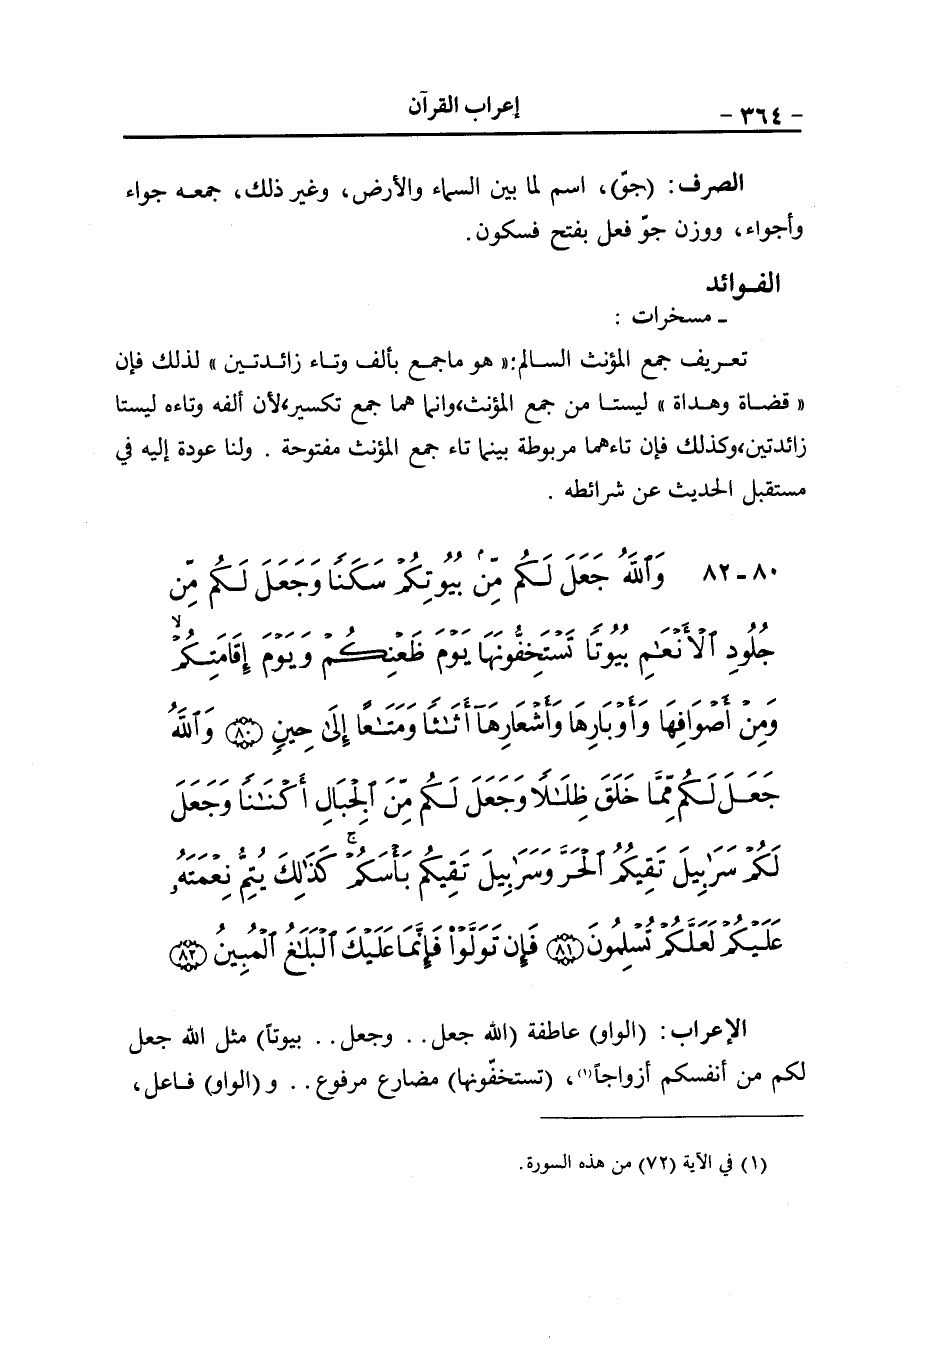 - ٣٦٤ -
إعراب القرآن
الصرف: (جوّ)، اسم لما بين السماء والأرض، وغير ذلك، جمعه جواء
وأجواء، ووزن جوّ فعل بفتح فسكون.
الفوائد
ـ مسخرات :
تعريف جمع المؤنث السالم:« هو ماجمع بألف وتاء زائدتين » لذلك فإن
« قضاة وهداة » ليستا من جمع المؤنث،وانما هما جمع تكسير،لأن ألفه وتاءه ليستا
زائدتين،وكذلك فإن تاءهما مربوطة بينما تاء جمع المؤنث مفتوحة . ولنا عودة إليه في
مستقبل الحديث عن شرائطه .
٨٠ - ٨٢ وَٱللَّهُ جَعَلَ لَكُم مِّنۢ بُيُوتِكُمْ سَكَنًا وَجَعَلَ لَكُم مِّن
جُلُودِ ٱلْأَنْعَٰمِ بُيُوتًا تَسْتَخِفُّونَهَا يَوْمَ ظَعْنِكُمْ وَيَوْمَ إِقَامَتِكُمْ ۙ
وَمِنْ أَصْوَافِهَا وَأَوْبَارِهَا وَأَشْعَارِهَآ أَثَٰثًا وَمَتَٰعًا إِلَىٰ حِينٍ ﴿٨٠﴾ وَٱللَّهُ
جَعَلَ لَكُم مِّمَّا خَلَقَ ظِلَٰلًا وَجَعَلَ لَكُم مِّنَ ٱلْجِبَالِ أَكْنَٰنًا وَجَعَلَ
لَكُمْ سَرَٰبِيلَ تَقِيكُمُ ٱلْحَرَّ وَسَرَٰبِيلَ تَقِيكُم بَأْسَكُمْ ۚ كَذَٰلِكَ يُتِمُّ نِعْمَتَهُۥ
عَلَيْكُمْ لَعَلَّكُمْ تُسْلِمُونَ ﴿٨١﴾ فَإِن تَوَلَّوْا۟ فَإِنَّمَا عَلَيْكَ ٱلْبَلَٰغُ ٱلْمُبِينُ ﴿٨٢﴾
الإعراب: (الواو) عاطفة (الله جعل.. وجعل.. بيوتاً) مثل الله جعل
لكم من أنفسكم أزواجاً(١)، (تستخفّونها) مضارع مرفوع.. و (الواو) فاعل،
(١) في الآية (٧٢) من هذه السورة.